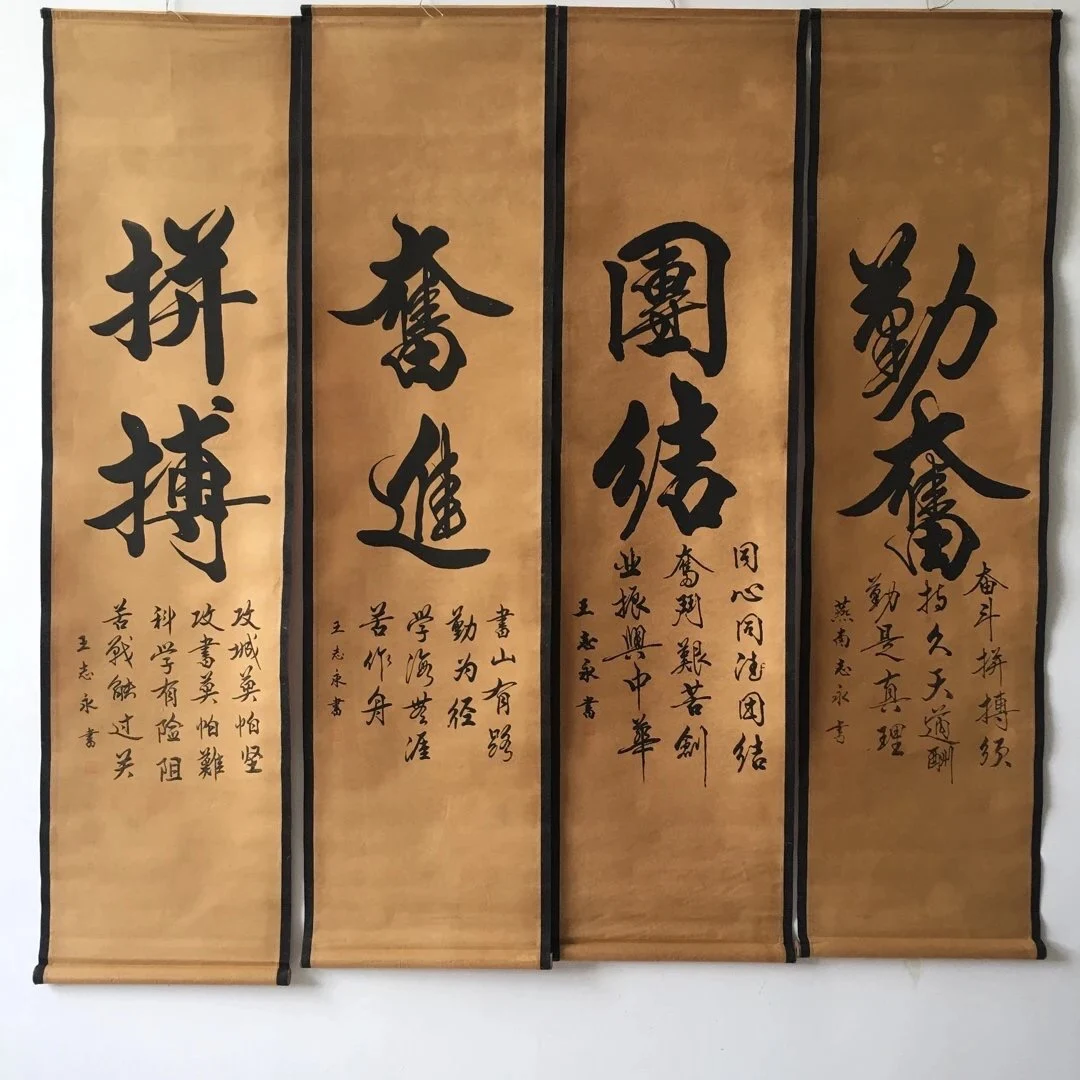 勤奮
奋斗拼搏须
持久天道酬
勤是真理
燕南志永书
團結
同心同德团结
奮鬥艱苦創
业振興中華
王志永書
奮進
書山有路
勤为径
学海無涯
苦作舟
王志永書
拼搏
攻城莫怕坚
攻書莫怕難
科学有险阻
苦戰能过关
王志永書